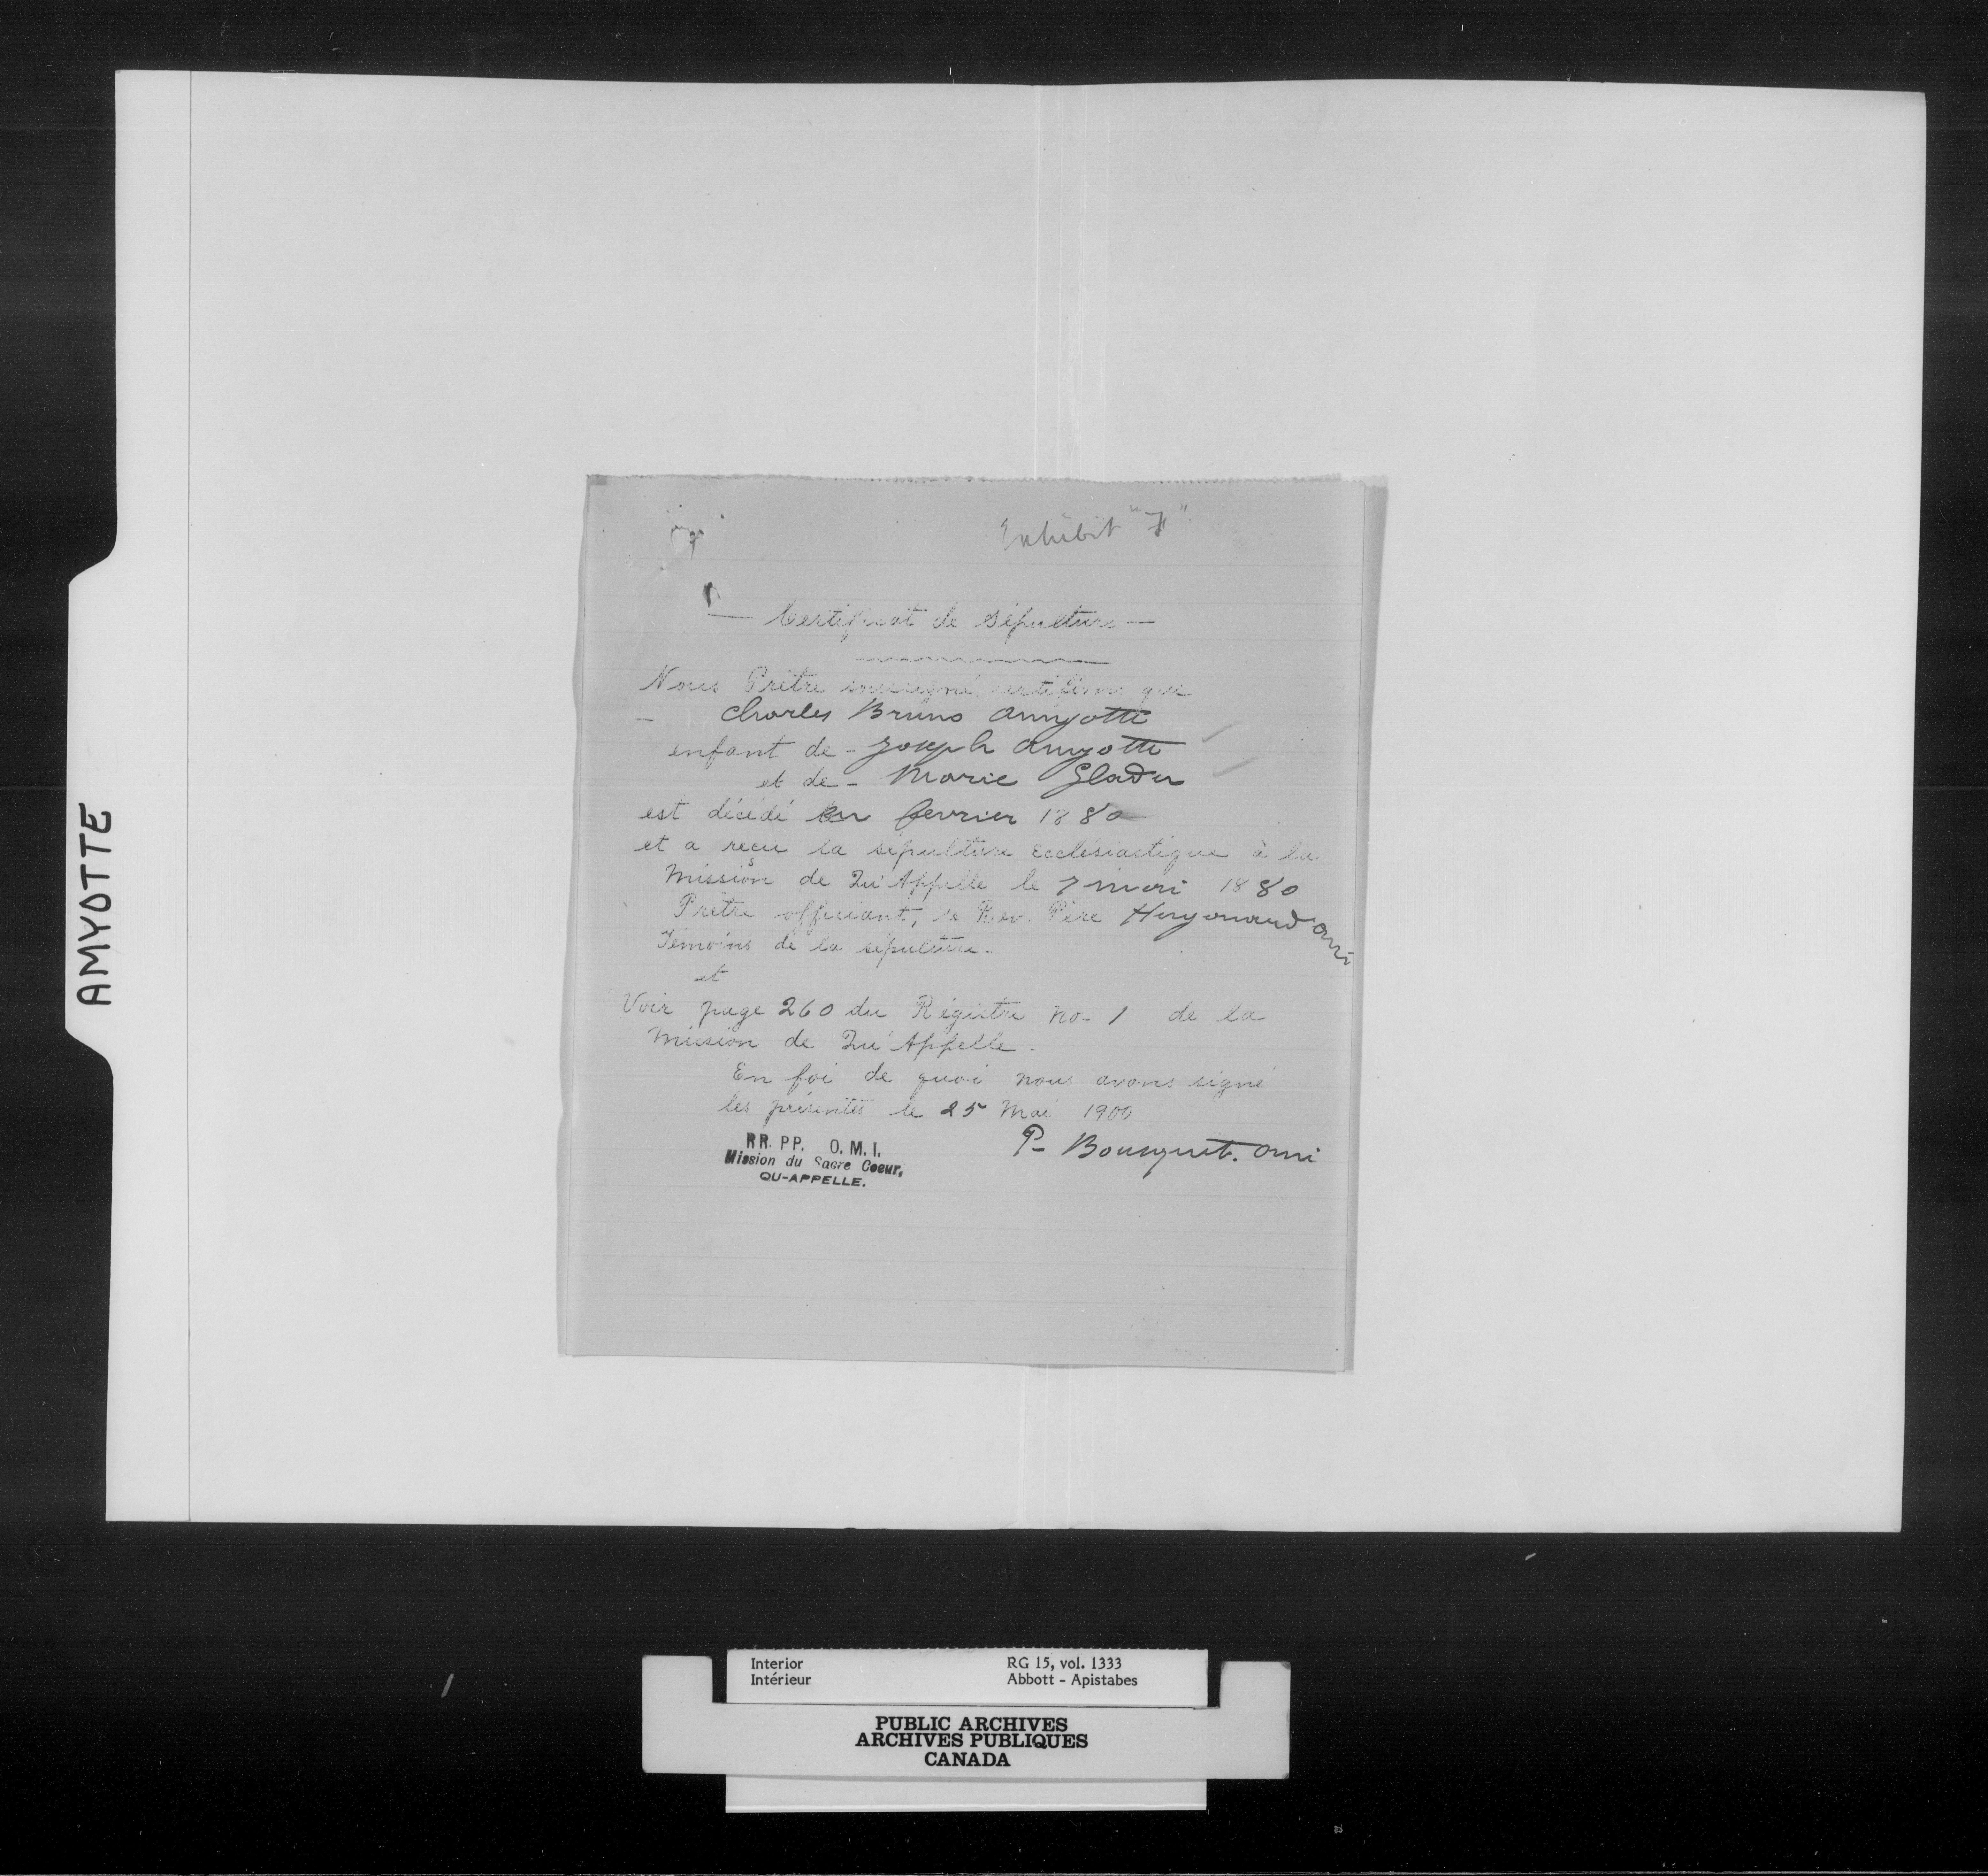 AMYOTTE
Exhibit "F"
— Certificat de Sépulture —
Nous Prêtre soussigné certifions que
— Charles Bruno Amyotte
enfant de - Joseph Amyotte
et de - Marie Gladu
est décédé en fevrier 1880
et a recu la sépulture Ecclésiastique à la
Mission de Qu'Appelle le 7 mai 1880
Prêtre officiant, le Rev. Père Hugonard omi
Témoins de la sépulture.
et
Voir page 260 du Régistre no- 1 de la
Mission de Qu'Appelle.
En foi de quoi nous avons signé
les présentes le 25 Mai 1900
P- Bousquet. omi
RR. PP. O. M. I.
Mission du Sacre Coeur,
QU-APPELLE.
Interior RG 15, vol. 1333
Intérieur Abbott - Apistabes
PUBLIC ARCHIVES
ARCHIVES PUBLIQUES
CANADA